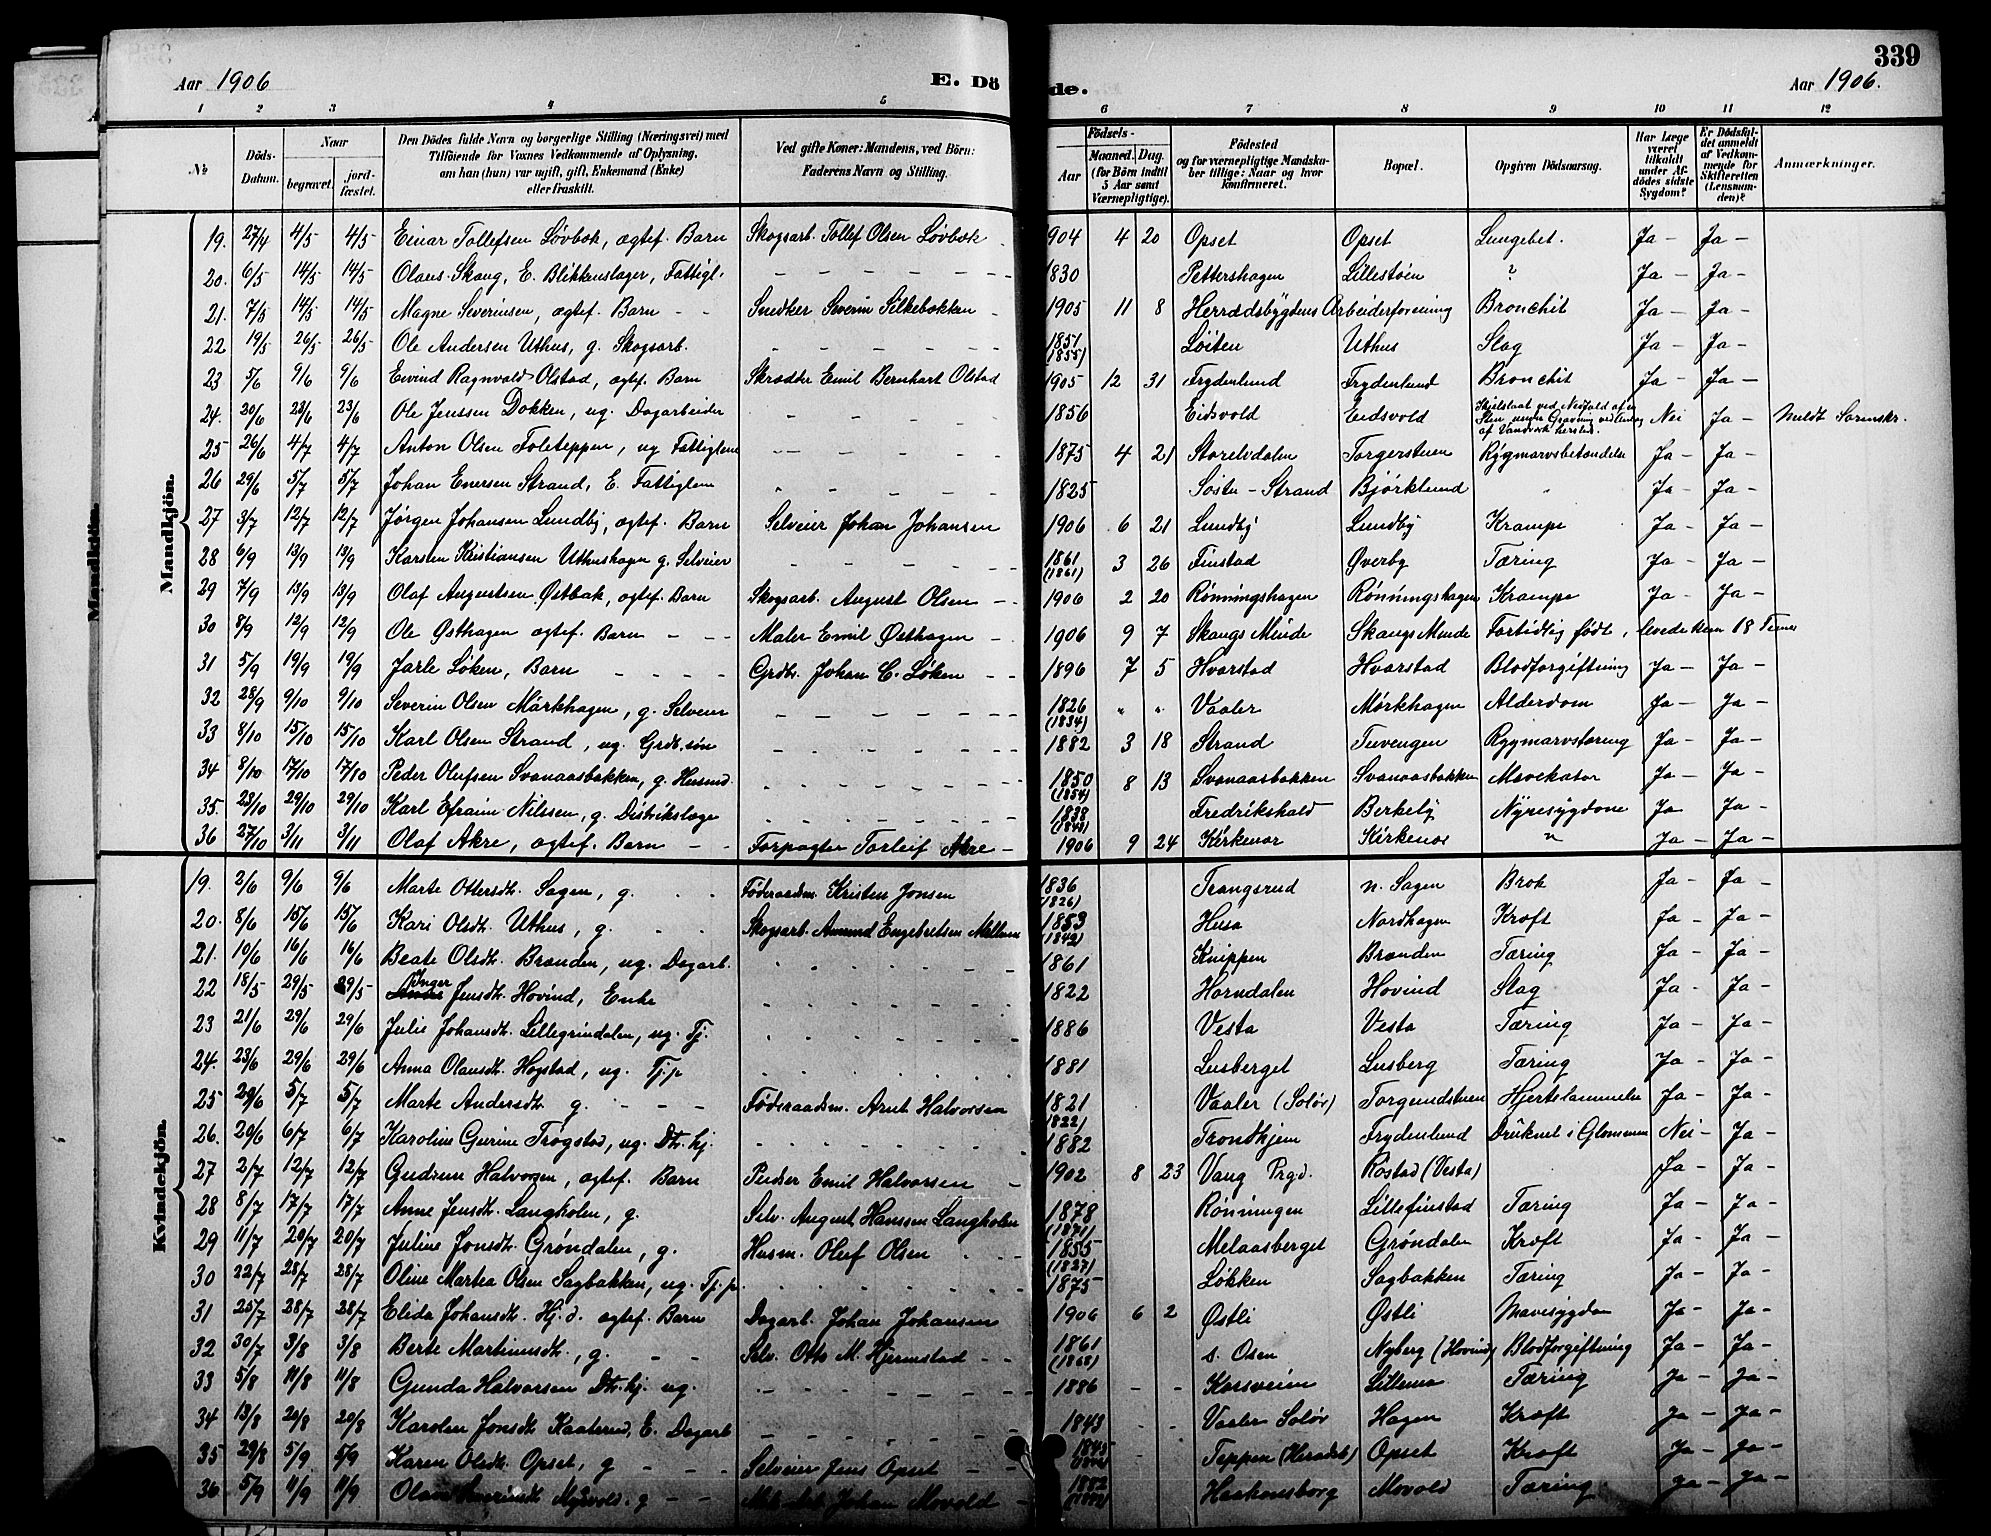 339
Aar 1906 E. Döde. Aar 1906.
1 2 3 4 5 6 7 8 9 10 11 12
№ Döds-Datum. Naar begravet. jordfæstet. Den Dödes fulde Navn og borgerlige Stilling (Næringsvei) med Tilföiende for Voxnes Vedkommende af Oplysning, om han (hun) var ugift, gift, Enkemand (Enke) eller fraskilt. Ved gifte Koner: Mandens, ved Börn: Faderens Navn og Stilling. Födsels- Aar Maaned. Dag. (for Börn indtil 5 Aar samt Værnepligtige). Födested og for værnepligtige Mandskaber tillige: Naar og hvor konfirmeret. Bopæl. Opgiven Dödsaarsag. Har Læge været tilkaldt under Afdödes sidste Sygdom? Er Dödsfaldet anmeldt af Vedkommende for Skifteretten (Lensmanden)? Anmærkninger.
Mandkjön.
19. 27/4 4/5 4/5 Einar Tollefsen Løvbæk, ægtef. Barn Skogsarb. Tollef Olsen Løvbæk 1904 4 20 Opset Opset Lungebet. Ja - Ja -
20. 6/5 14/5 14/5 Olaus Skaug, E. Blikkenslager, Fattigl. 1830 Pettershagen Lillestøen ? Ja - Ja -
21. 7/5 14/5 14/5 Magne Severinsen, ægtef. Barn Snedker Severin Silkebækken 1905 11 8 Herradsbygdens Arbeiderforening Bronchit Ja - Ja -
22 19/5 26/5 26/5 Ole Andersen Uthus, g. Skogsarb. 1851 (1855) Løiten Uthus Slag Ja - Ja -
23 5/6 9/6 9/6 Eivind Ragnvald Olstad, ægtef. Barn Skrædder Emil Bernhart Olstad 1905 12 31 Frydenlund Frydenlund Bronchit Ja - Ja -
24. 20/6 23/6 23/6 Ole Jenssen Dokken, ug. Dagarbeider 1856 Eidsvold Eidsvold Ihjelslaat ved Nedfald af en Sten under Gravning af Vandværk Nei Ja - Meldt Sorenskr.
25 26/6 4/7 4/7 Anton Olsen Foleteppen, ug Fattiglem 1875 4 21 Storelvdalen Torgerstuen Rygmarvsbetændelse Ja - Ja -
26 29/6 5/7 5/7 Johan Enersen Strand, E. Fattiglem 1825 Søstu-Strand Bjørklund " Ja - Ja -
27 3/7 12/7 12/7 Jørgen Johansen Lundby, ægtef. Barn Selveier Johan Johansen 1906 6 21 Lundby Lundby Krampe Ja - Ja -
28 6/9 13/9 13/9 Karsten Kristiansen Uthushagen g. Selveier 1861 (1861) 3 26 Finstad Øverby Tæring Ja - Ja -
29 7/9 13/9 13/9 Olaf Augustsen Østbæk, ægtef. Barn Skogsarb. August Olsen 1906 2 20 Rønningshagen Rønningshagen Krampe Ja - Ja -
30 8/9 12/9 12/9 Ole Østhagen ægtef. Barn Maler Emil Østhagen 1906 9 7 Skaugs Minde Skaugs Minde Fortidlig født, levede kun 18 Timer
31 5/9 19/9 19/9 Jarle Løken, Barn Grdbr. Johan C. Løken 1896 7 5 Hvarstad Hvarstad Blodforgiftning Ja - Ja -
32 28/9 9/10 9/10 Severin Olsen Mørkhagen, g. Selveier 1826 (1834) " " Vaaler Mørkhagen Alderdom Ja - Ja -
33 8/10 15/10 15/10 Karl Olsen Strand, ug. Grdb. søn 1882 3 18 Strand Tuvengen Rygmarvstæring Ja - Ja -
34 8/10 17/10 17/10 Peder Olufsen Svanaasbakken, g. Husmd. 1850 (1854) 8 13 Svanaasbakken Svanaasbakken Mavekatar Ja - Ja -
35. 23/10 29/10 29/10 Karl Efraim Nilssen, g. Distriktslæge 1838 Fredrikshald Berkely Nyresygdom Ja Ja -
36 27/10 3/11 3/11 Olaf Akre, ægtef. Barn Forpagter Torleif Akre 1906 9 24 Kirkenær Kirkenær " Ja - Ja -
Kvindekjön.
19. 2/6 9/6 9/6 Marte Ottersdtr. Sagen, g. Føderaadsm. Kristen Jonsen 1836 (1826) Trangsrud n. Sagen Brok Ja - Ja -
20. 8/6 15/6 15/6 Kari Olsdtr. Uthus, g. Skogsarb. Amund Engebretsen 1853 (1842) Husa Nordhagen Kræft Ja - Ja -
21. 10/6 16/6 16/6 Beate Olsdtr. Brænden, ug. Dagarb. 1861 Knippen Brænden Tæring Ja - Ja -
22 18/5 29/5 29/5 Inger Jensdtr. Hovind, Enke 1822 Horndalen Hovind Slag Ja - Ja -
23 21/6 29/6 29/6 Julie Johansdtr. Lillegrindalen, ug. Tj. 1886 Vesta Vesta Tæring Ja - Ja -
24. 23/6 29/6 29/6 Anna Olausdtr. Høgstad, ug. Tj. p 1881 Lusberget Lusberg Tæring Ja - Ja -
25 29/6 5/7 5/7 Marte Andersdtr. g. Føderaadsm. Arnt Halvorsen 1821 (1822) Vaaler (Solør) Torgundstuen Hjertelammelse Ja - Ja -
26. 20/6 6/7 6/7 Karoline Gurine Trøgstad, ug. Dtr. hj. 1882 Trondhjem Frydenlund Druknet i Glommen Nei - Ja -
27 2/7 12/7 12/7 Gudrun Halvorsen, ægtef. Barn Pudser Emil Halvorsen 1902 8 23 Vang Prgd. Rostad (Vesta) Ja - Ja -
28 8/7 17/7 17/7 Anne Jensdtr. Langholen, g. Selv. August Hanssen Langholen 1878 (1871) Rønningen Lillefinstad Tæring Ja - Ja -
29 11/7 20/7 20/7 Juline Jonsdtr. Grøndalen, g. Husm. Oluf Olsen 1855 (1827) Melaasberget Grøndalen Kræft Ja - Ja -
30 22/7 28/7 28/7 Oline Martea Olsen Sagbakken, ug. Tj. p. 1875 Løkken Sagbakken Tæring Ja - Ja -
31 25/7 28/7 28/7 Elida Johansdtr. Hj. d. ægtef. Barn Dagarb. Johan Johansen 1906 6 2 Østli Østli Mavesygdom Ja - Ja -
32 30/7 3/8 3/8 Berte Martinusdtr., g. Selv. Otto M. Hjermstad 1861 (1868) s. Osen Nyberg (Hovind) Blodforgiftning Ja - Ja -
33 5/8 11/8 11/8 Gunda Halvorsen Dtr. hj. ug. 1886 Korsveien Lillemo Tæring Ja - Ja -
34 13/8 20/8 20/8 Karolen Jonsdtr. Kaaterud, E. Dagarb 1843 Vaaler Solør Hagen Kræft Ja - Ja -
35 29/8 5/9 5/9 Karen Olsdtr. Opset, g Selveier Jens Opset 1845 Teppen (Heradsb) Opset Kræft Ja - Ja -
36 5/9 11/9 11/9 g Johan Movold 1882 Haakonsborg Movold Tæring Ja - Ja -